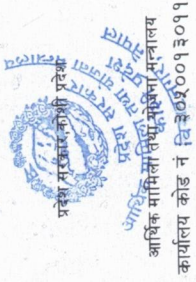 प्रदेश सरकार, कोशी प्रदेश
आर्थिक मामिला तथा योजना मन्त्रालय
कार्यालय कोड नं ३०१००१३०११